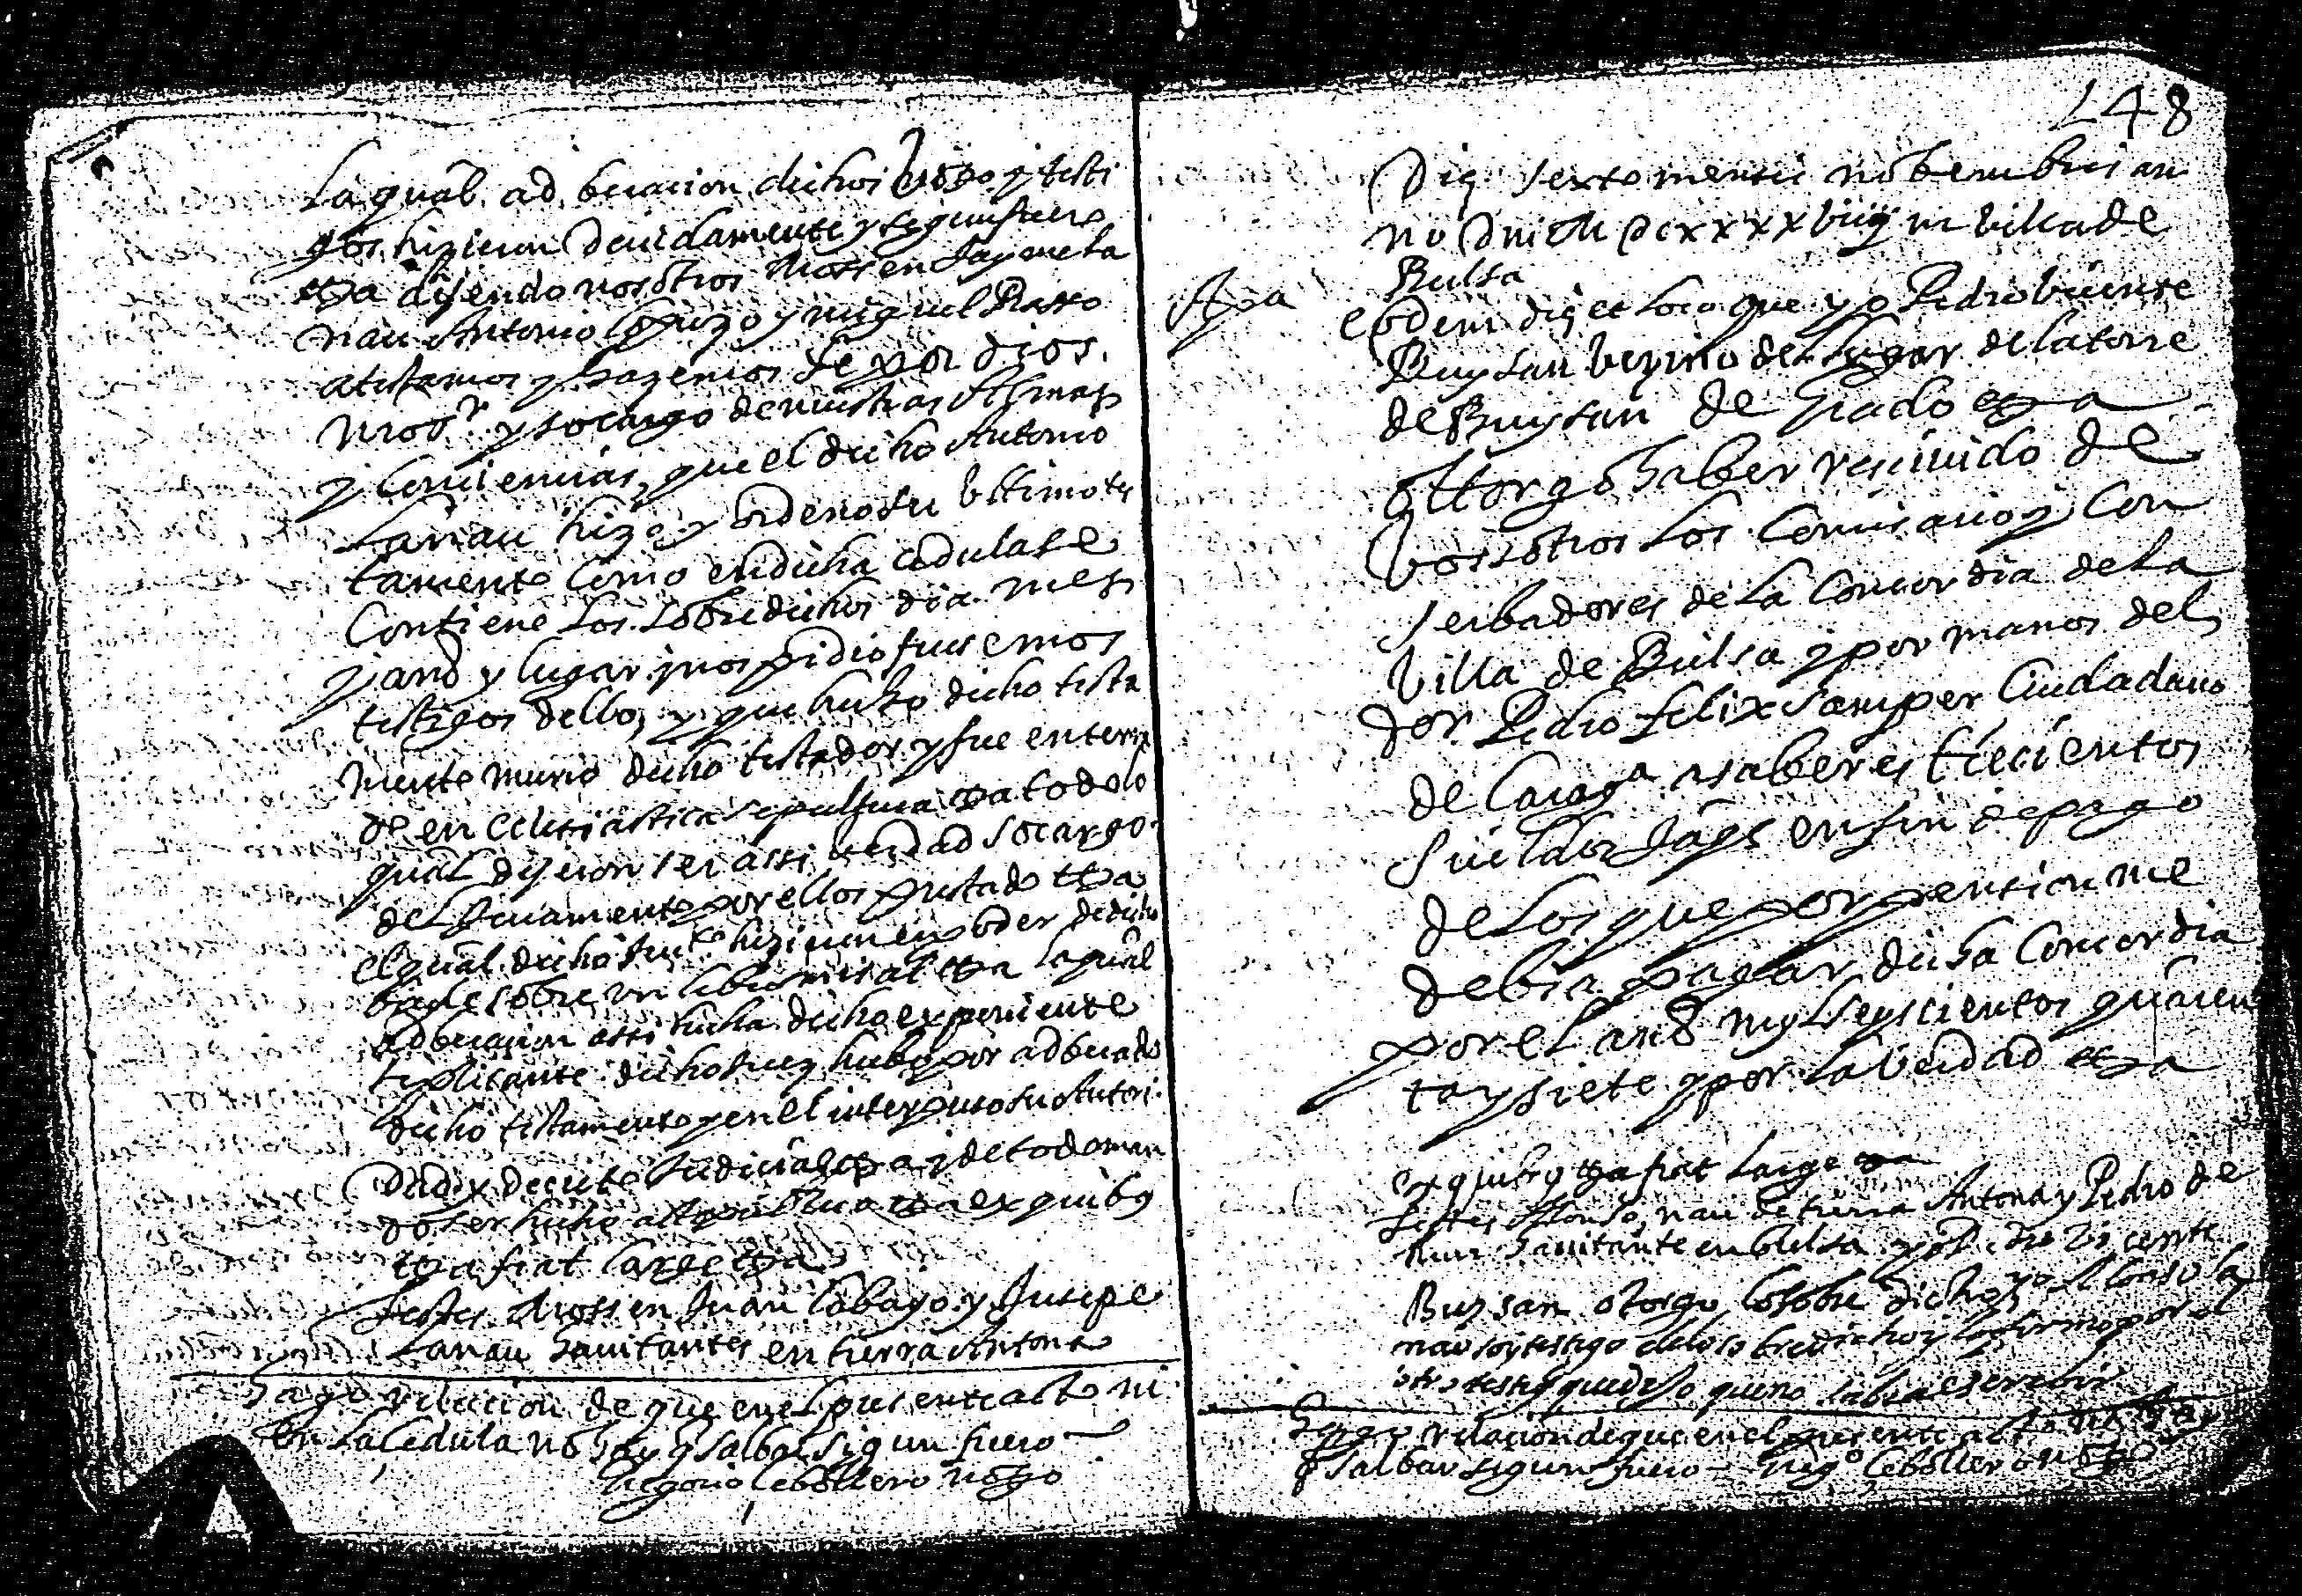 La qual adberacion dichos Vicario y testi
gos hizieron deuidamente y segun fuero
etza diziendo nosotros Mossen Jayme La
nau Antonio Lopezo y miguel
atestamos y hazemos fe por dios
nro sr y so cargo de nuestras Almas
y Conciencias, que el dicho Antonio
Lanau hizo y ordeno su vltimo tes
tamento Como en dicha cedula se
Contiene los sobredichos dia mes
y año y lugar y nos pidio fuesemos
testigos dello, y que hecho dicho testa
mento murio dicho testador y fue enterra
do en eclesiastica sepultura etza todo lo
qual dijeron ser assi verdad so cargo
del Juramento por ellos prestado etza
el qual dicho Jurto hizieron en poder de dicho
bayle sobre vn libro misal etza La qual
adberacion assi hecha dicho exponiente
suplicante dicho Juez hubo por adberado
dicho testamento y en el interpuso su Autori
dad y decreto Judicial etza y de todo man
do ser hecho acto publico etza ex quibus
etza fiat large etza
Testes Mossen Juan Cabayo y Jusepe
Lanau hauitantes en tierra Antona
Hago relacion de que en el presente acto ni
en La Cedula no hay q salbar segun fuero
Gregorio Cebollero noto
148
Die sexto mensis nobembris an
no Dni M DCxxxxviiij in villa de
Bielsa
Apa
Eodem die et loco que yo Pedro vicente
Buysan vezino del Lugar de la torre
de Buysan de grado etza
ottorgo haber reciuido de
Vossotros los Comisarios y Con
serbadores de La Concordia de La
Villa de Bielsa y por manos del
dor Pedro felix samper Ciudadano
de Caragª a saber es trecientos
sueldos Jaqs en fin de pago
de Los que por pension me
debia pagar dicha Concordia
por el año myl seyscientos quaren
ta y siete y por la verdad etza
ex quibus etza fiat large etza
testes Alonso nau de tierra Antona y Pedro de
Mur hauitante en bielsa yo Pedro Vicente
Buysan otorgo lo sobre dicho yo Alonso la
nau soy testigo de lo sobredicho y lo firmo por el
otro testigo que dijo que no sabia escrebir
Hago relacion de que en el presente acto no hay
q salbar segun fuero Gregº Cebollero noto